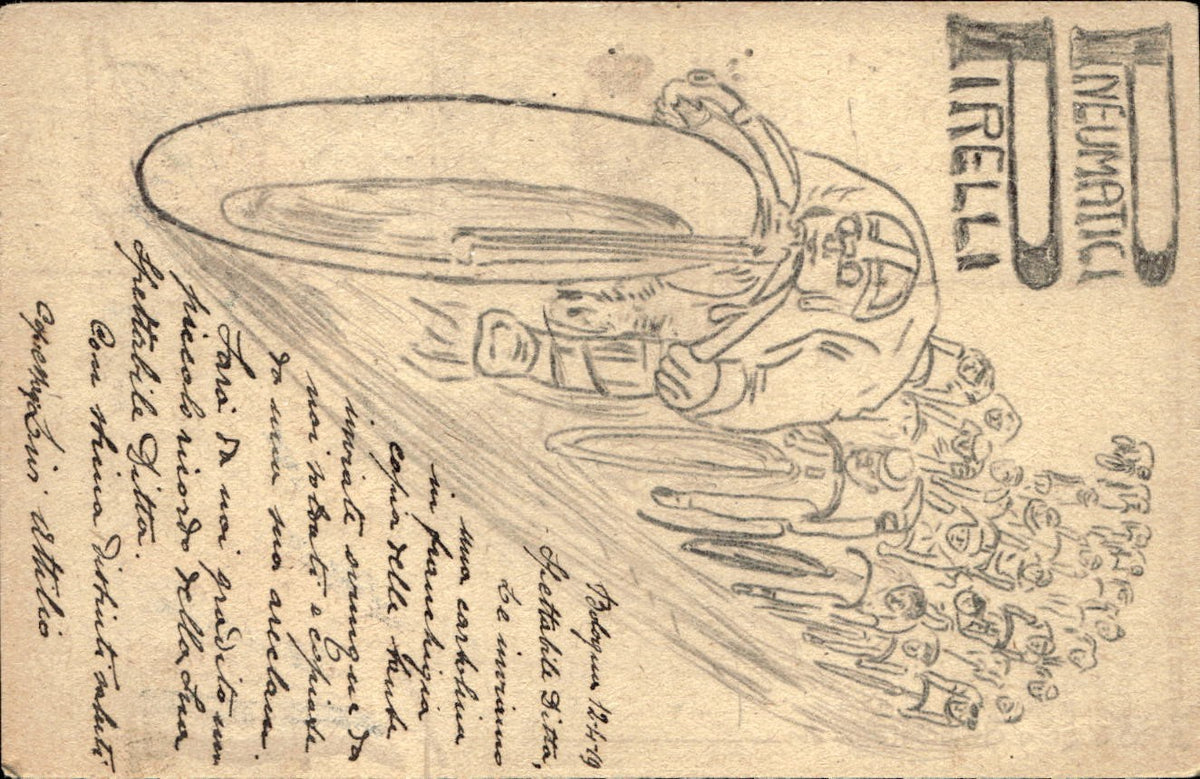 PNEUMATICI
PIRELLI
Bologna 12-4-19
Spettabile Ditta,
Le inviamo
una cartolina
in franchigia
copia delle tante
inviate ovunque da
noi soldati e copiate
da una sua areclam.
Sarà da noi gradito un
piccolo ricordo della Sua
Spettabile Ditta.
Con stima distinti saluti
Attilio